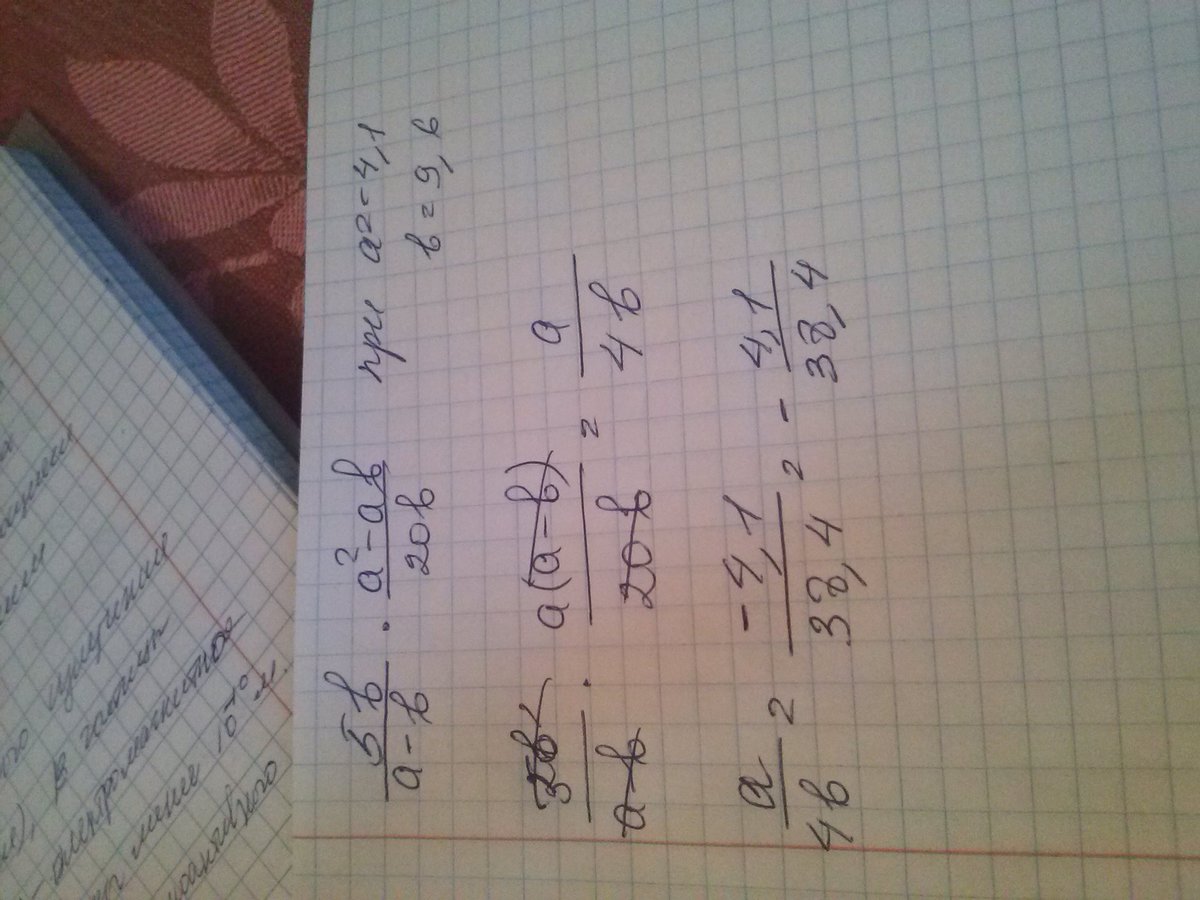 5b/(a-b) · (a²-ab)/20b при a=-4,1
b=9,6
5b/(a-b) · a(a-b)/20b = a/4b
a/4b = -4,1/38,4 = -4,1/38,4
излучение
в
электромагнитное
менее 10⁻¹⁰ м.